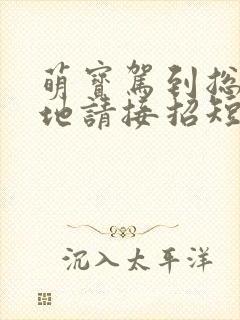 萌寶駕到总
地請接招短
沉入太平洋